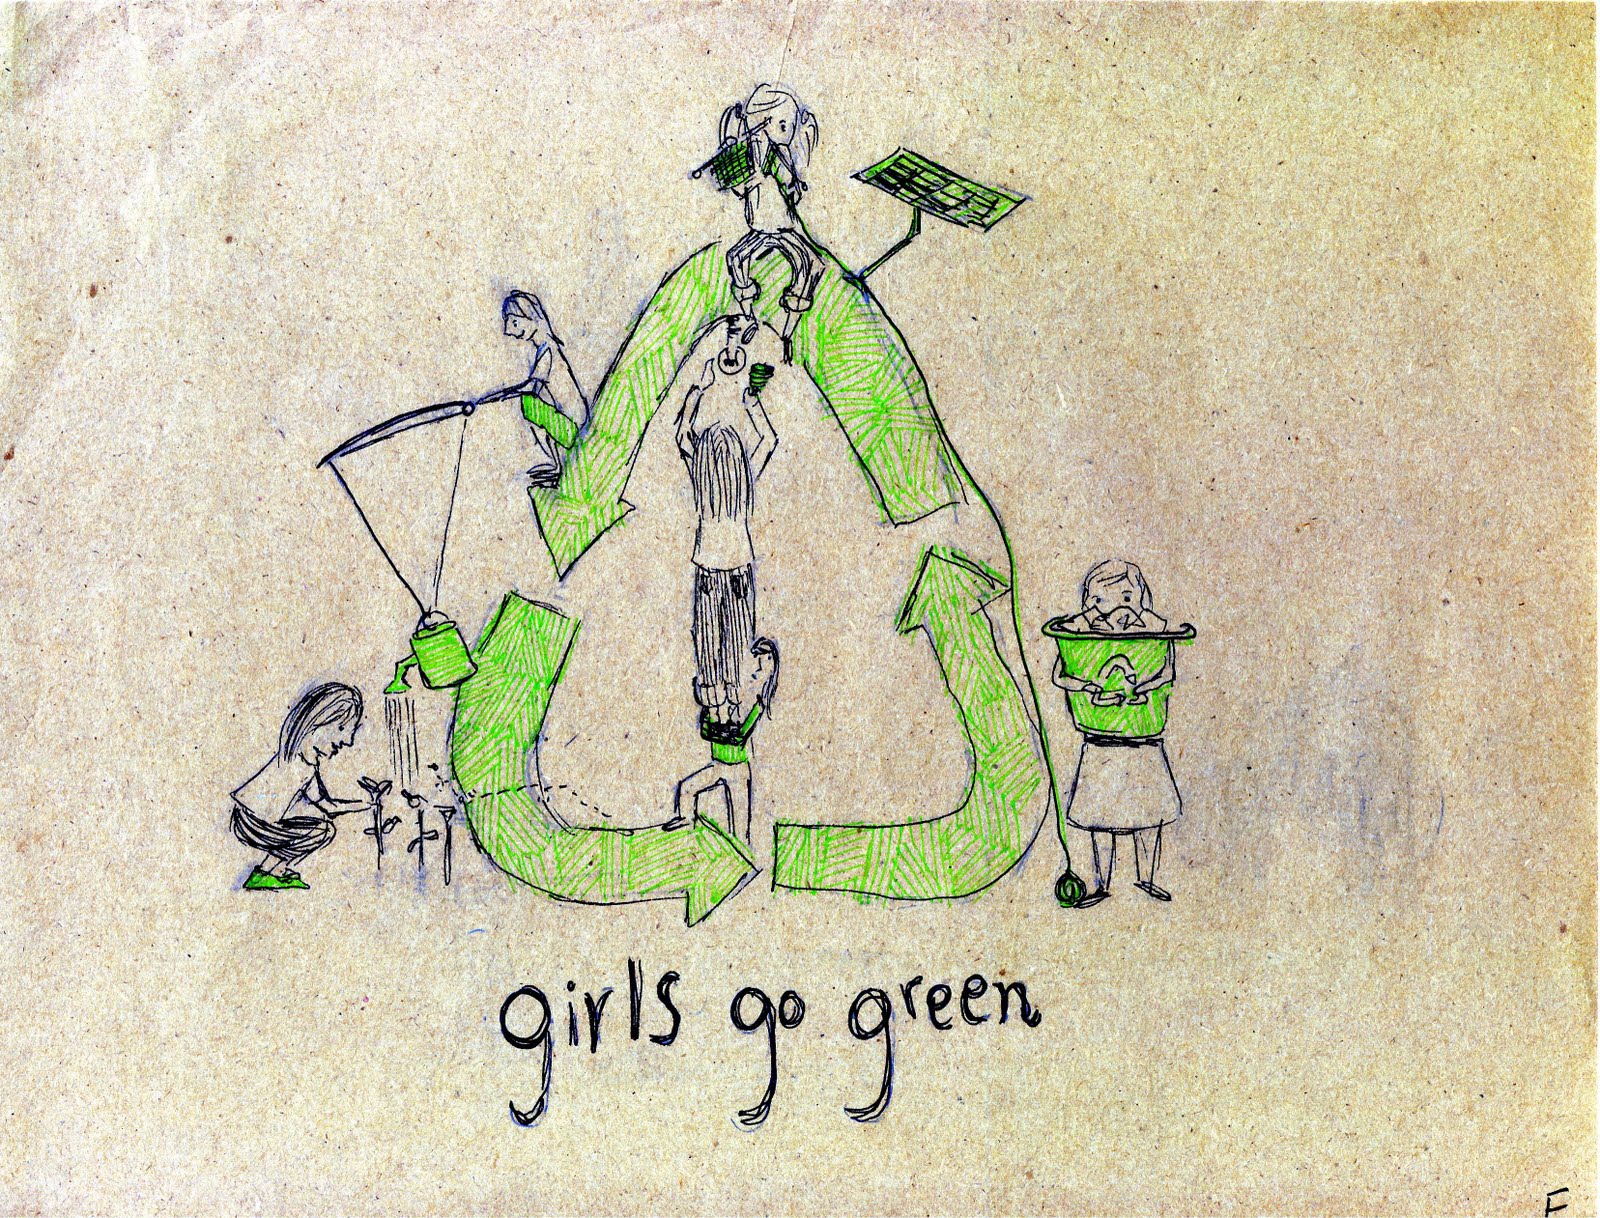 girls go green
F